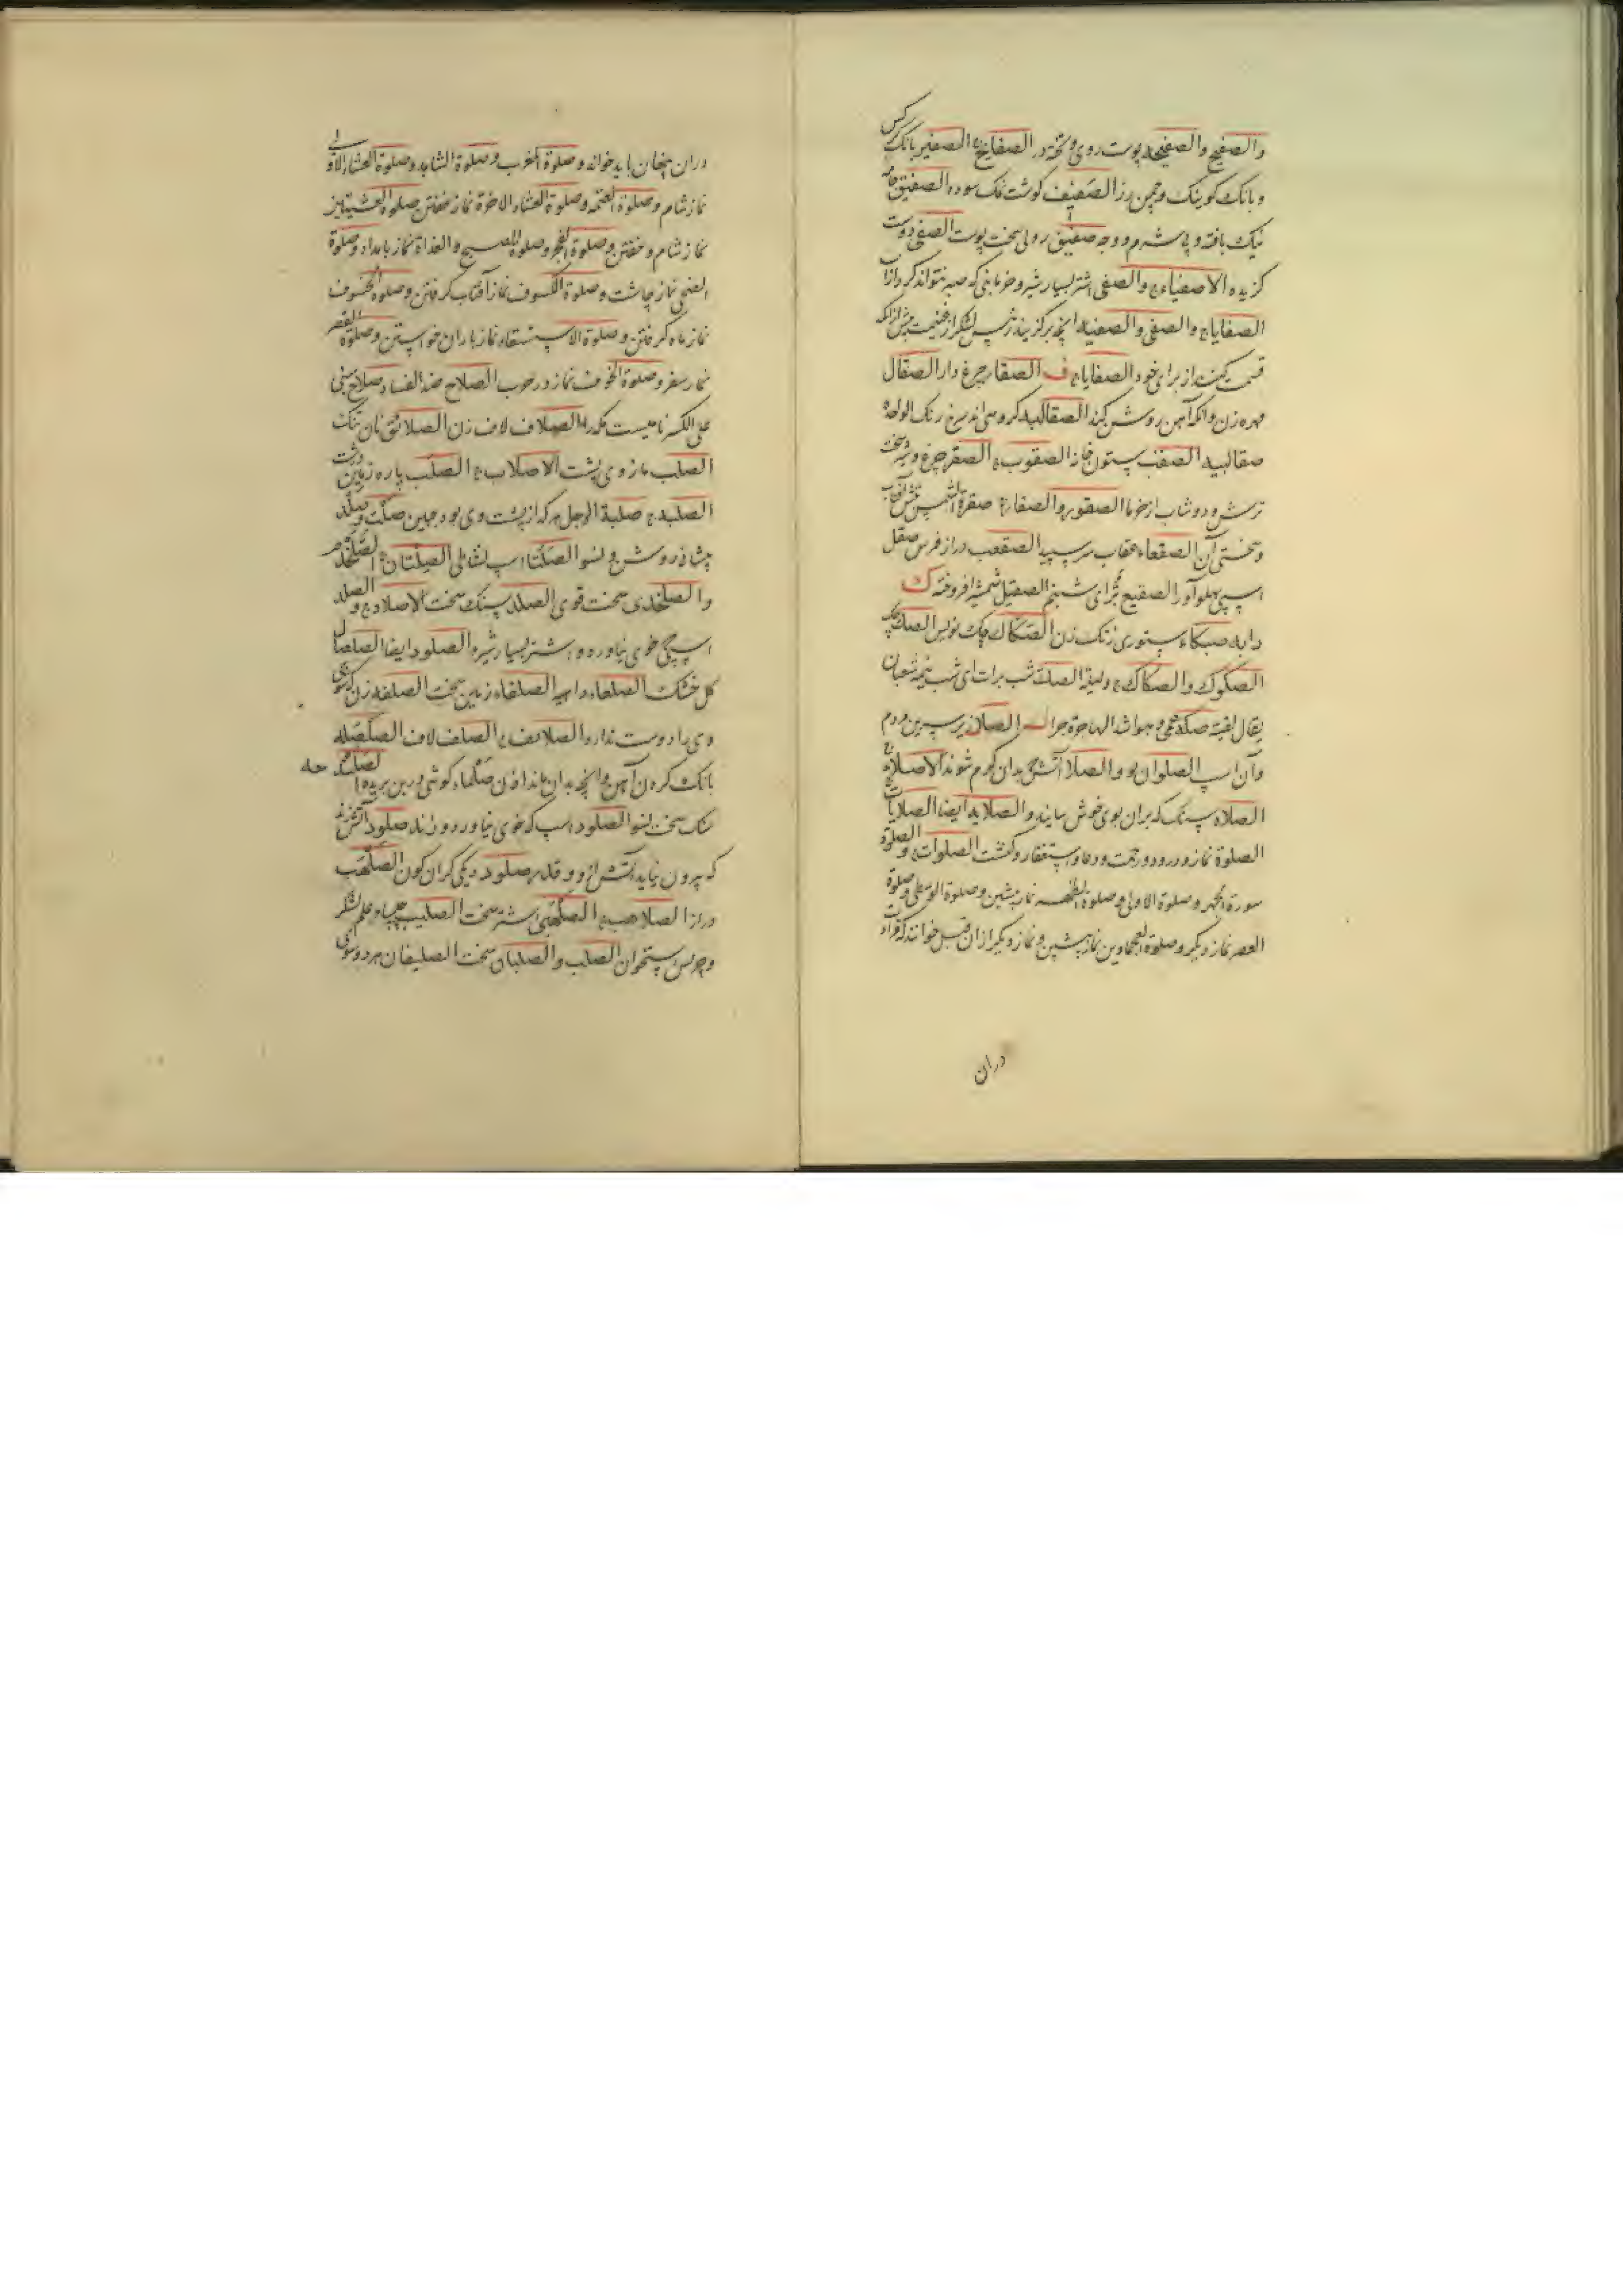 والصفیح والصفیحه پوست روی و تخته در الصفایح ج الصفیر بانک کرکس
و بانک کوینک و چمن رز الصفیف کوشت نمک سوده الصفیق جامه
نیک بافته و بی شرم و وجه صفیق روی سخت پوست الصفی دوست
کزیده الاصفیاء ج والصفی اشتر بسیار شیر و خرمابنی که
الصفایا ج والصفی والصفیه انچه برکزیند رئیس لشکر از غنیمت پیش ازانکه
قسمت کنند از برای خود الصفایا ج ف الصقار چرغ دار الصقال
مهره زن و انکه آهن روشن کند الصقالبه کروهی اند سرخ رنک الواحد
صقالبیه الصقب ستون خانه الصقوب ج الصقر چرغ و شیر سخت
ترش و دوشاب از خرما الصقور والصقار ج صقرة الشمس تبش آفتاب
و سختی آن الصقعاء عقاب سر سپید الصقعب دراز فرس صقل
اسپی پهلو آور الصقیع شبنم الصقیل شمشیر افروخته ک
دابه صکاء ستوری زنک زن الصکاک چک نویس الصک چک
الصکوک والصکاک ج ولیلة الصک شب برات ای شب نیمه شعبان
یقال لقیته صکة عمی و هو اشد الهاجرة حرا ل الصلا زیر سرین مردم
و آن اسپ الصلوان بود والصلا آتشی که بدان کرم شوند الاصلاء ج
الصلاه سنک که بران بوی خوش سایند والصلایه ایضا الصلایات ج
الصلوة نماز و درود و رحمت و دعا و استغفار و کنشت الصلوات ج والصلوة
سورة الحمد و صلوة الاولی و صلوة الظهر نماز پیشین و صلوة الوسطی و صلوة
العصر نماز دیکر و صلوة العجماوین نماز پیشین و نماز دیکر ازان قبل خوانند که قرآت
دران
دران پنهان باید خواند و صلوة المغرب و صلوة الشاهد و صلوة العشاء الاولی
نماز شام و صلوة العتمه و صلوة العشاء الاخرة نماز خفتن صلوة العشیتین
نماز شام و خفتن و صلوة الفجر و صلوة الصبح والغداة نماز بامداد و صلوة
الضحی نماز چاشت و صلوة الکسوف نماز آفتاب کرفتن و صلوة الخسوف
نماز ماه کرفتن و صلوة الاستسقاء نماز باران خواستن و صلوة القصر
نماز سفر و صلوة الخوف نماز در حرب الصلاح ضد الفساد صلاح مبنی
علی الکسر نامیست مکه را الصلاف لاف زن الصلائق نان تنک
الصلب مازوی پشت الاصلاب ج الصلب پاره زمین درشت
الصلبه ج صلبة الرجل هرکه از پشت وی بود جبین صلت و صلد
پیشانی روشن و لسو الصلتان اسپ نشاطی الصلتان ج الصلخدم
والصلخدی سخت قوی الصلد سنک سخت الاصلاد ج والصلد
اسپی خوی نیاورده و اشتر بسیار شیر والصلود ایضا الصلصال
کل خشک الصلعاء داهیه الصلفاء زمین سخت الصلفه زن که شوی
وی را دوست ندارد الصلائف ج الصلف لاف الصلصله
بانک کردن آهن و انچه بدان ماند اذن صلماء کوشی از بن بریده الصلد حه
سنک سخت لسو الصلود اسپ که خوی نیاورد و زند صلود آتش زند
که بیرون نیاید آتش از و و قدر صلود دیکی کران کون الصلهب
دراز الصلاهب ج الصلهبی اشتر سخت الصلیب چلیپا و علم لشکر
و چربش استخوان الصلب والصلبان سخت الصلیفان هر دو سوی